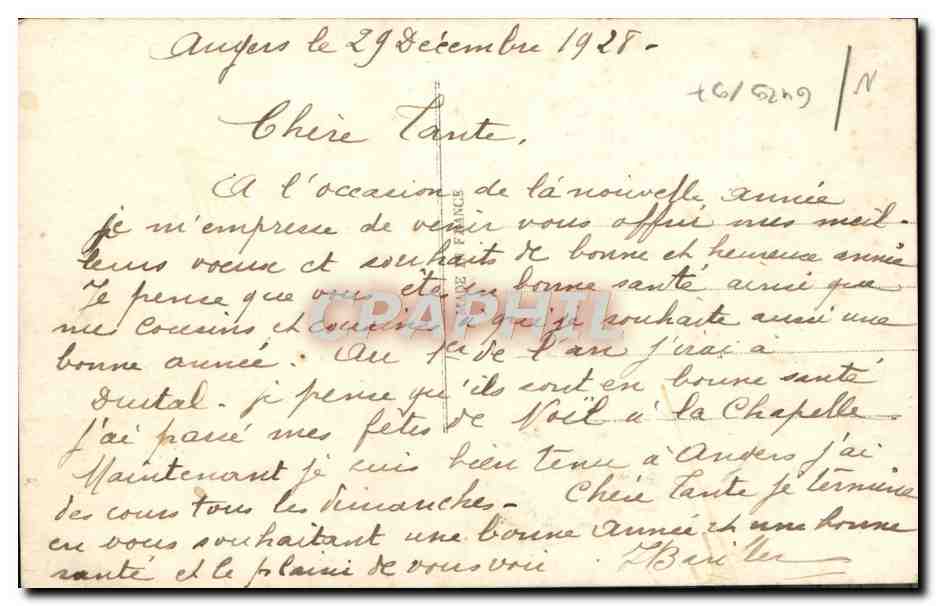 Angers le 29 Décembre 1928 -
N
Chère Tante,
A l'occasion de la nouvelle année
je m'empresse de venir vous offrir mes meil-
leurs voeux et souhaits de bonne et heureuse année
Je pense que vous êtes en bonne santé ainsi que
mes cousins et cousines à qui je souhaite aussi une
bonne année. Au 1er de l'an j'irai à
Durtal - je pense qu'ils sont en bonne santé
j'ai passé mes fêtes de Noël à la Chapelle -
Maintenant je suis bien tenu à Angers j'ai
des cours tous les dimanches - Chère Tante je termine
en vous souhaitant une bonne année et une bonne
santé et le plaisir de vous voir.
MADE IN FRANCE
CPAPHIL